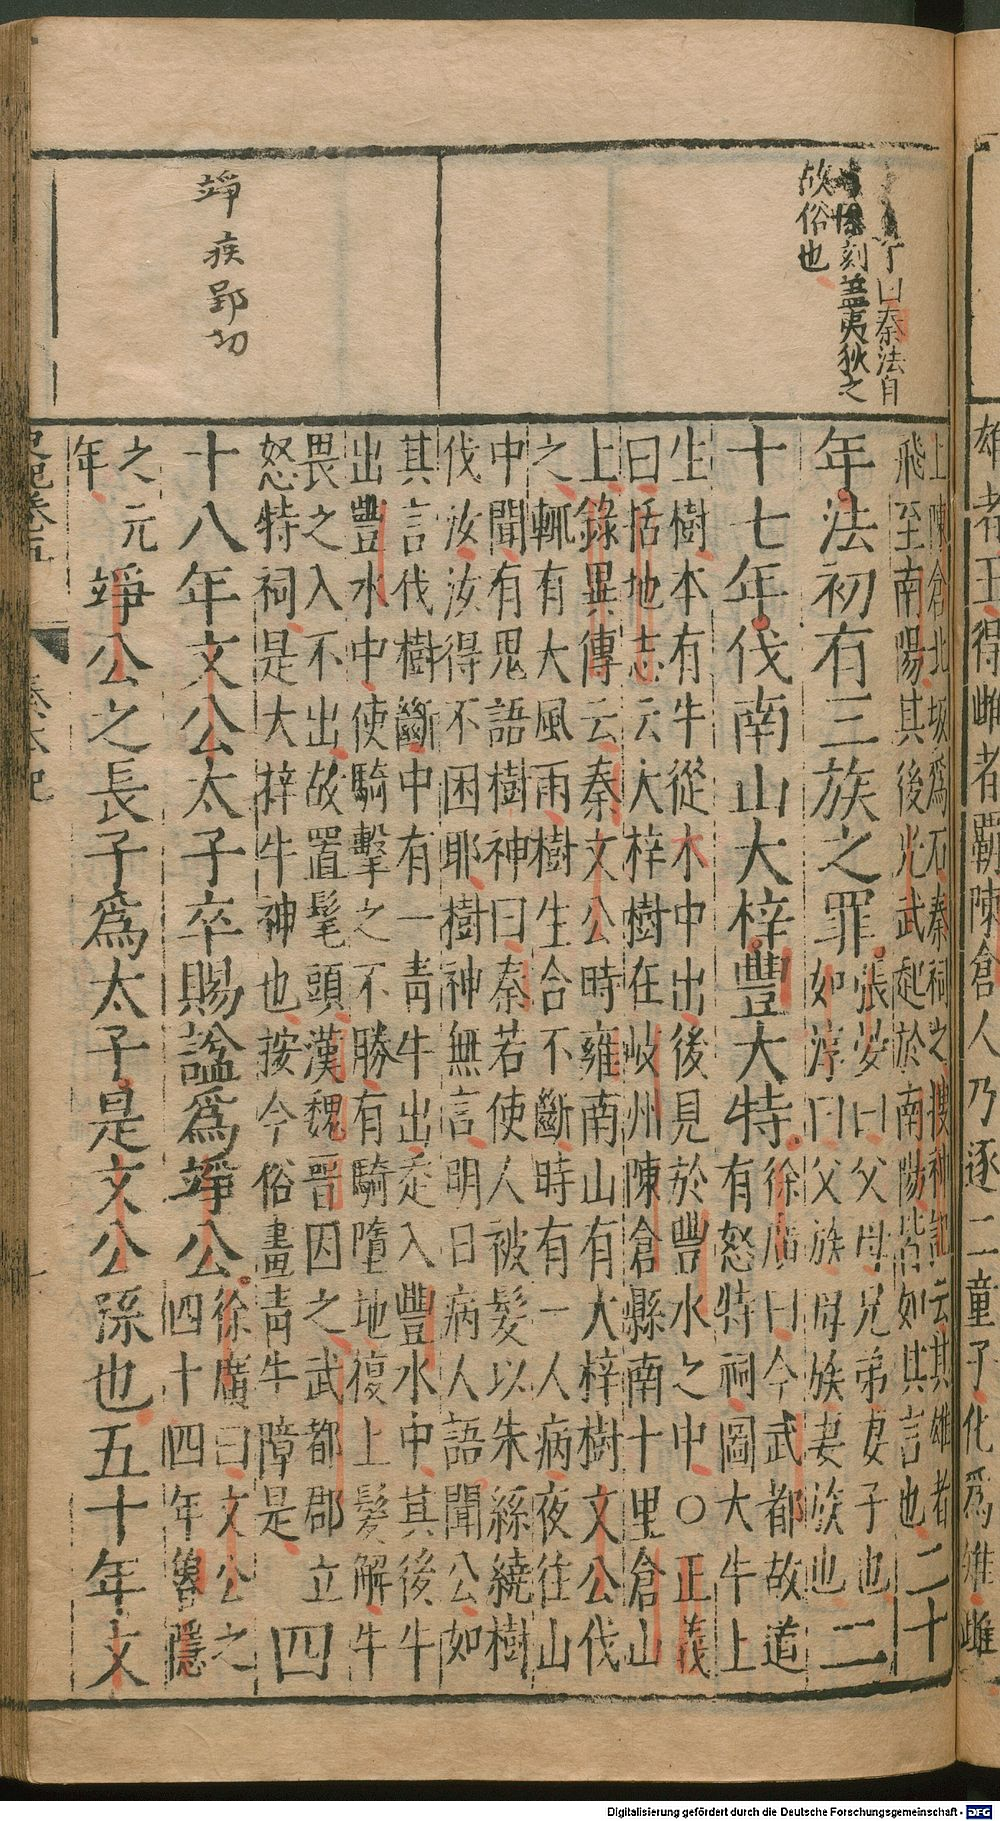 雄者王得雌者霸陳倉人乃逐二童子化爲雉雌
了曰秦法自
刻蓋夷狄之
故俗也
竫疾郢切
上陳倉北坂爲石秦祠之搜神記云其雄者
飛至南陽其後光武起於南陽皆如其言也二十
年法初有三族之罪張晏曰父母兄弟妻子也
如淳曰父族母族妻族也二
十七年伐南山大梓豐大特徐廣曰今武都故道
有怒特祠圖大牛上
生樹本有牛從木中出後見於豐水之中〇正義
曰括地志云大梓樹在岐州陳倉縣南十里倉山
上錄異傳云秦文公時雍南山有大梓樹文公伐
之輒有大風雨樹生合不斷時有一人病夜往山
中聞有鬼語樹神曰秦若使人被髮以朱絲繞樹
伐汝汝得不困耶樹神無言明日病人語聞公如
其言伐樹斷中有一青牛出走入豐水中其後牛
出豐水中使騎擊之不勝有騎墮地復上髮解牛
畏之入不出故置髦頭漢魏晉因之武都郡立
怒特祠是大梓牛神也按今俗畫青牛障是四
十八年文公太子卒賜諡爲竫公徐廣曰文公之
四十四年魯隱
之元
年竫公之長子爲太子是文公孫也五十年文
史記卷五
秦本紀
Digitalisierung gefördert durch die Deutsche Forschungsgemeinschaft - DFG